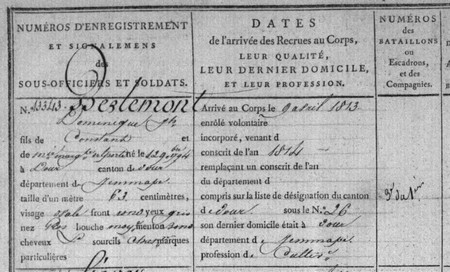 NUMÉROS D'ENREGISTREMENT
ET SIGNALEMENS
des
SOUS-OFFICIERS ET SOLDATS.
N. 13343 Berlemont
Dominique Jh
fils de Constant
et de
à Dour canton de Dour
département de Jemmape
taille d'un mètre 63 centimètres,
visage ovale front rond yeux gris
nez gros bouche moy. menton rond
cheveux sourcils Ch. marques
particulières
DATES
de l'arrivée des Recrues au Corps,
LEUR QUALITÉ,
LEUR DERNIER DOMICILE,
ET LEUR PROFESSION.
Arrivé au Corps le 9 avril 1813
enrôlé volontaire
incorporé, venant d
conscrit de l'an 1814
remplaçant un conscrit de l'an
du département d
compris sur la liste de désignation du canton
d Dour sous le N. 26
son dernier domicile était à Dour
département d Jemmape
profession de
NUMÉROS
des
BATAILLONS
ou
Escadrons,
et des
Compagnies.
3e du 1er